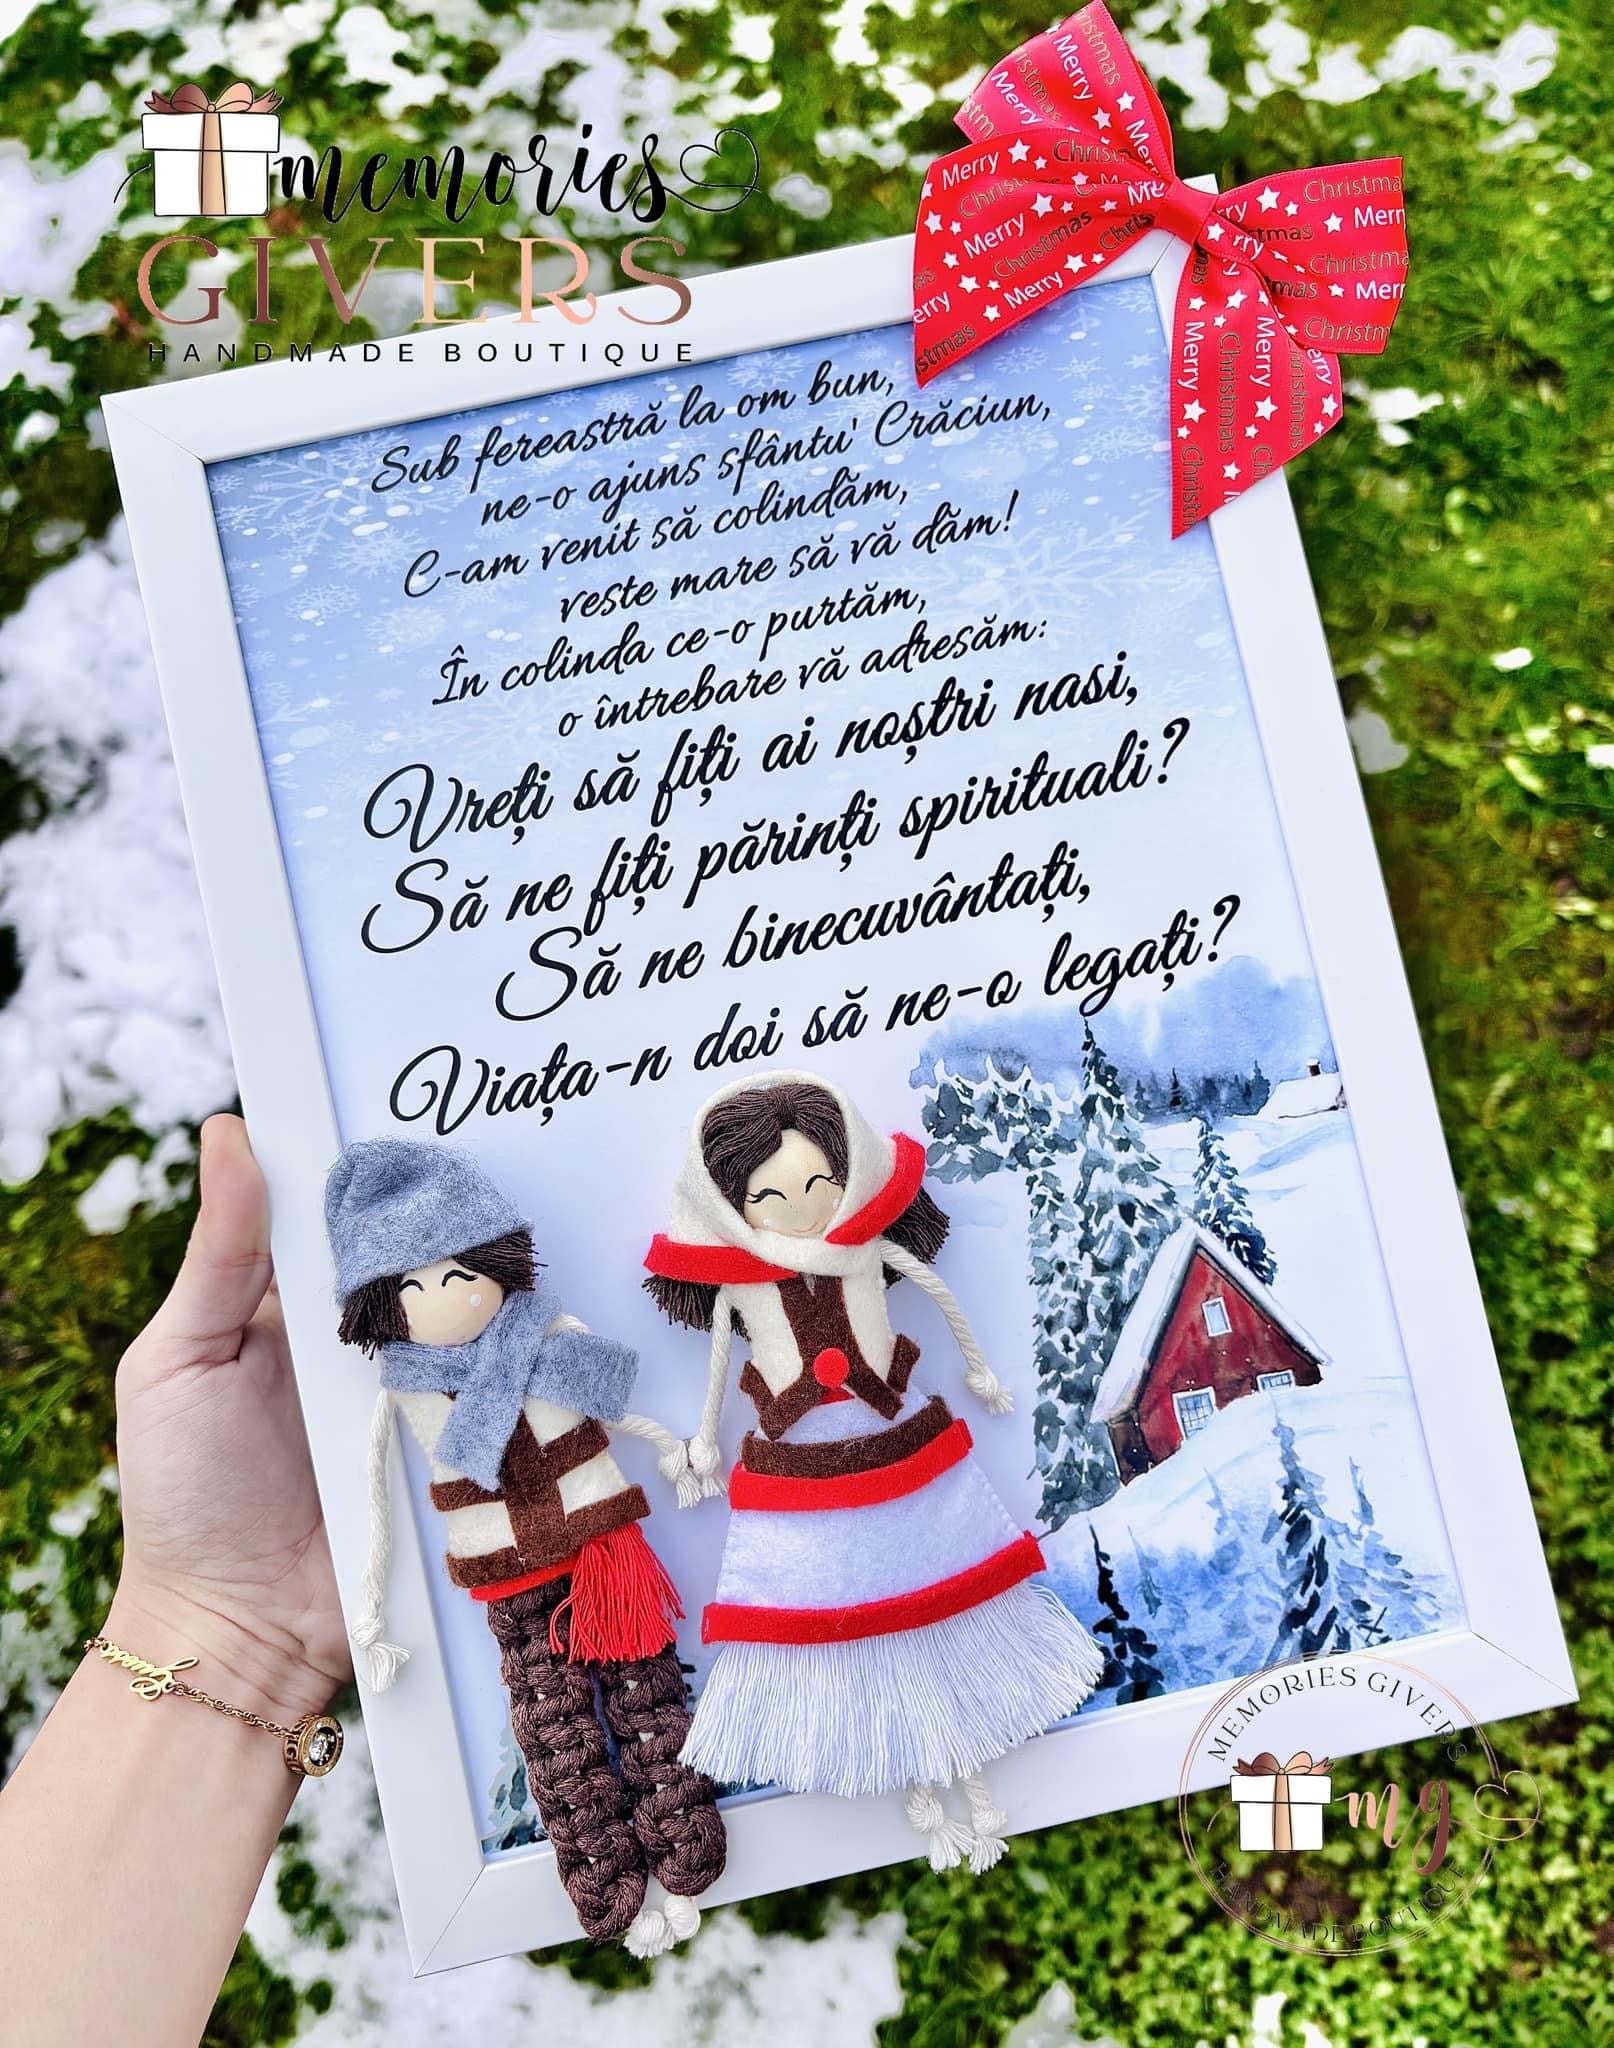 memories
GIVERS
HANDMADE BOUTIQUE
Merry Christmas
Sub fereastră la om bun,
ne-o ajuns sfântu' Crăciun,
C-am venit să colindăm,
veste mare să vă dăm!
În colinda ce-o purtăm,
o întrebare vă adresăm:
Vreți să fiți ai noștri nasi,
Să ne fiți părinți spirituali?
Să ne binecuvântați,
Viața-n doi să ne-o legați?
guess
MEMORIES GIVERS
mg
HANDMADE BOUTIQUE